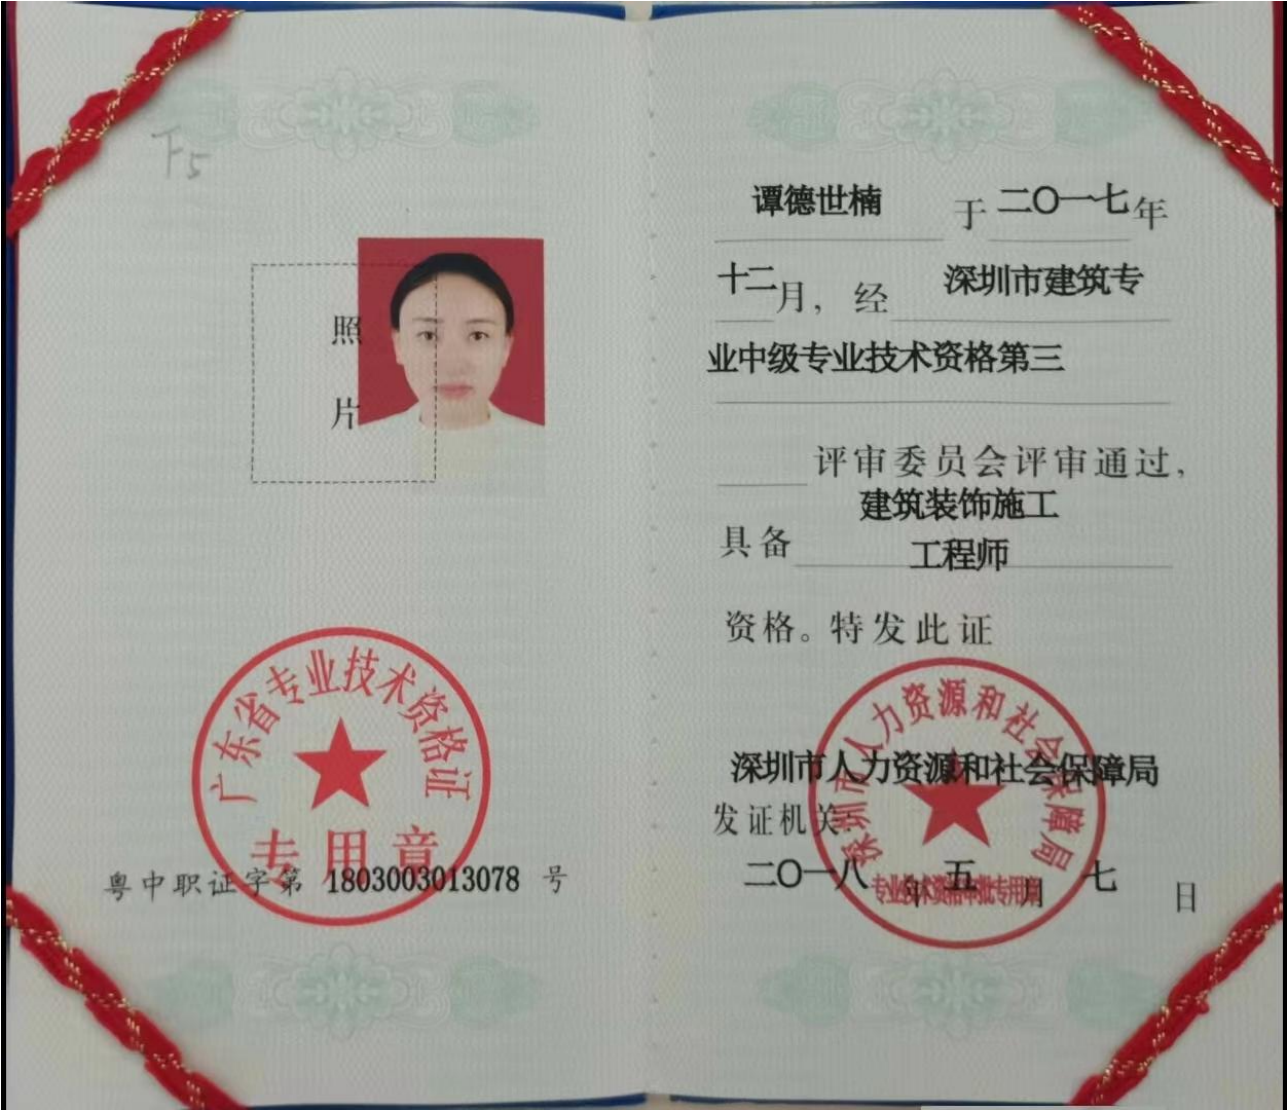 F5
照
片
广东省专业技术资格证
专用章
粤中职证字第 1803003013078 号
谭德世楠 于 二〇一七 年
十二 月，经 深圳市建筑专
业中级专业技术资格第三
评审委员会评审通过，
建筑装饰施工
具备 工程师
资格。特发此证
深圳市人力资源和社会保障局
深圳市人力资源和社会保障局
发证机关：
二〇一八 年 五 月 七 日